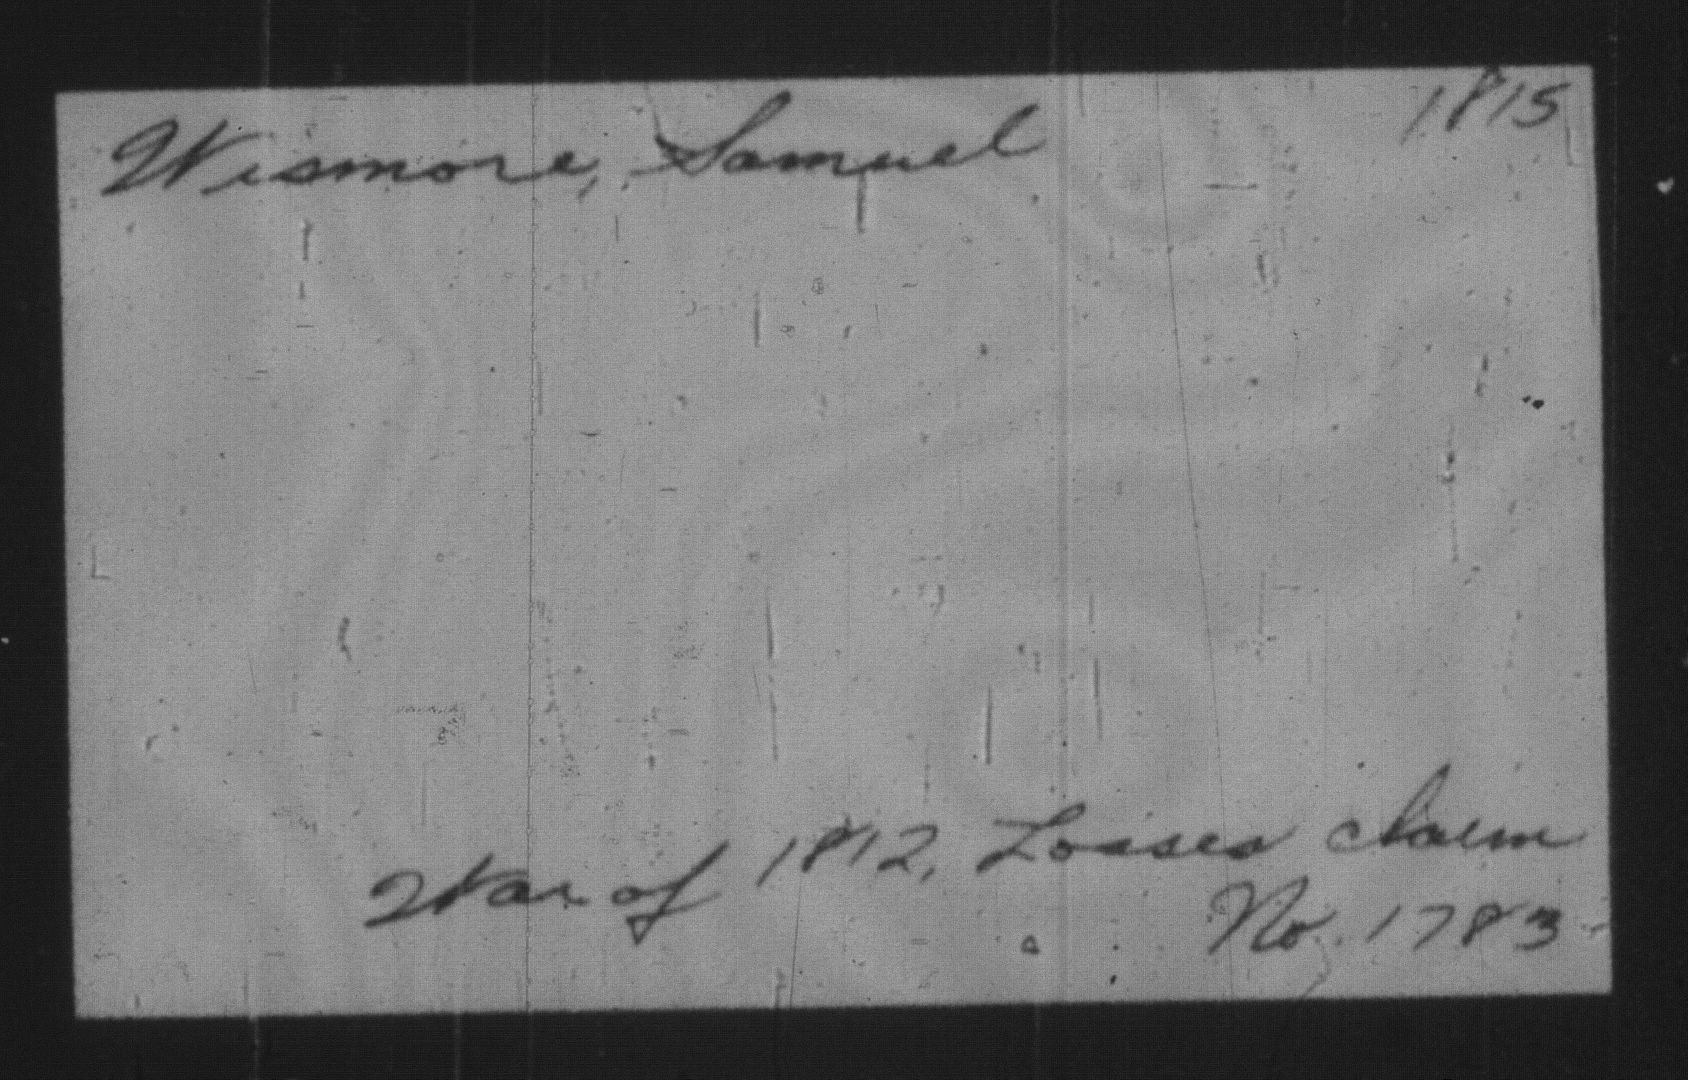 Wismore, Samuel 1815
War of 1812, Losses claim
No. 1783